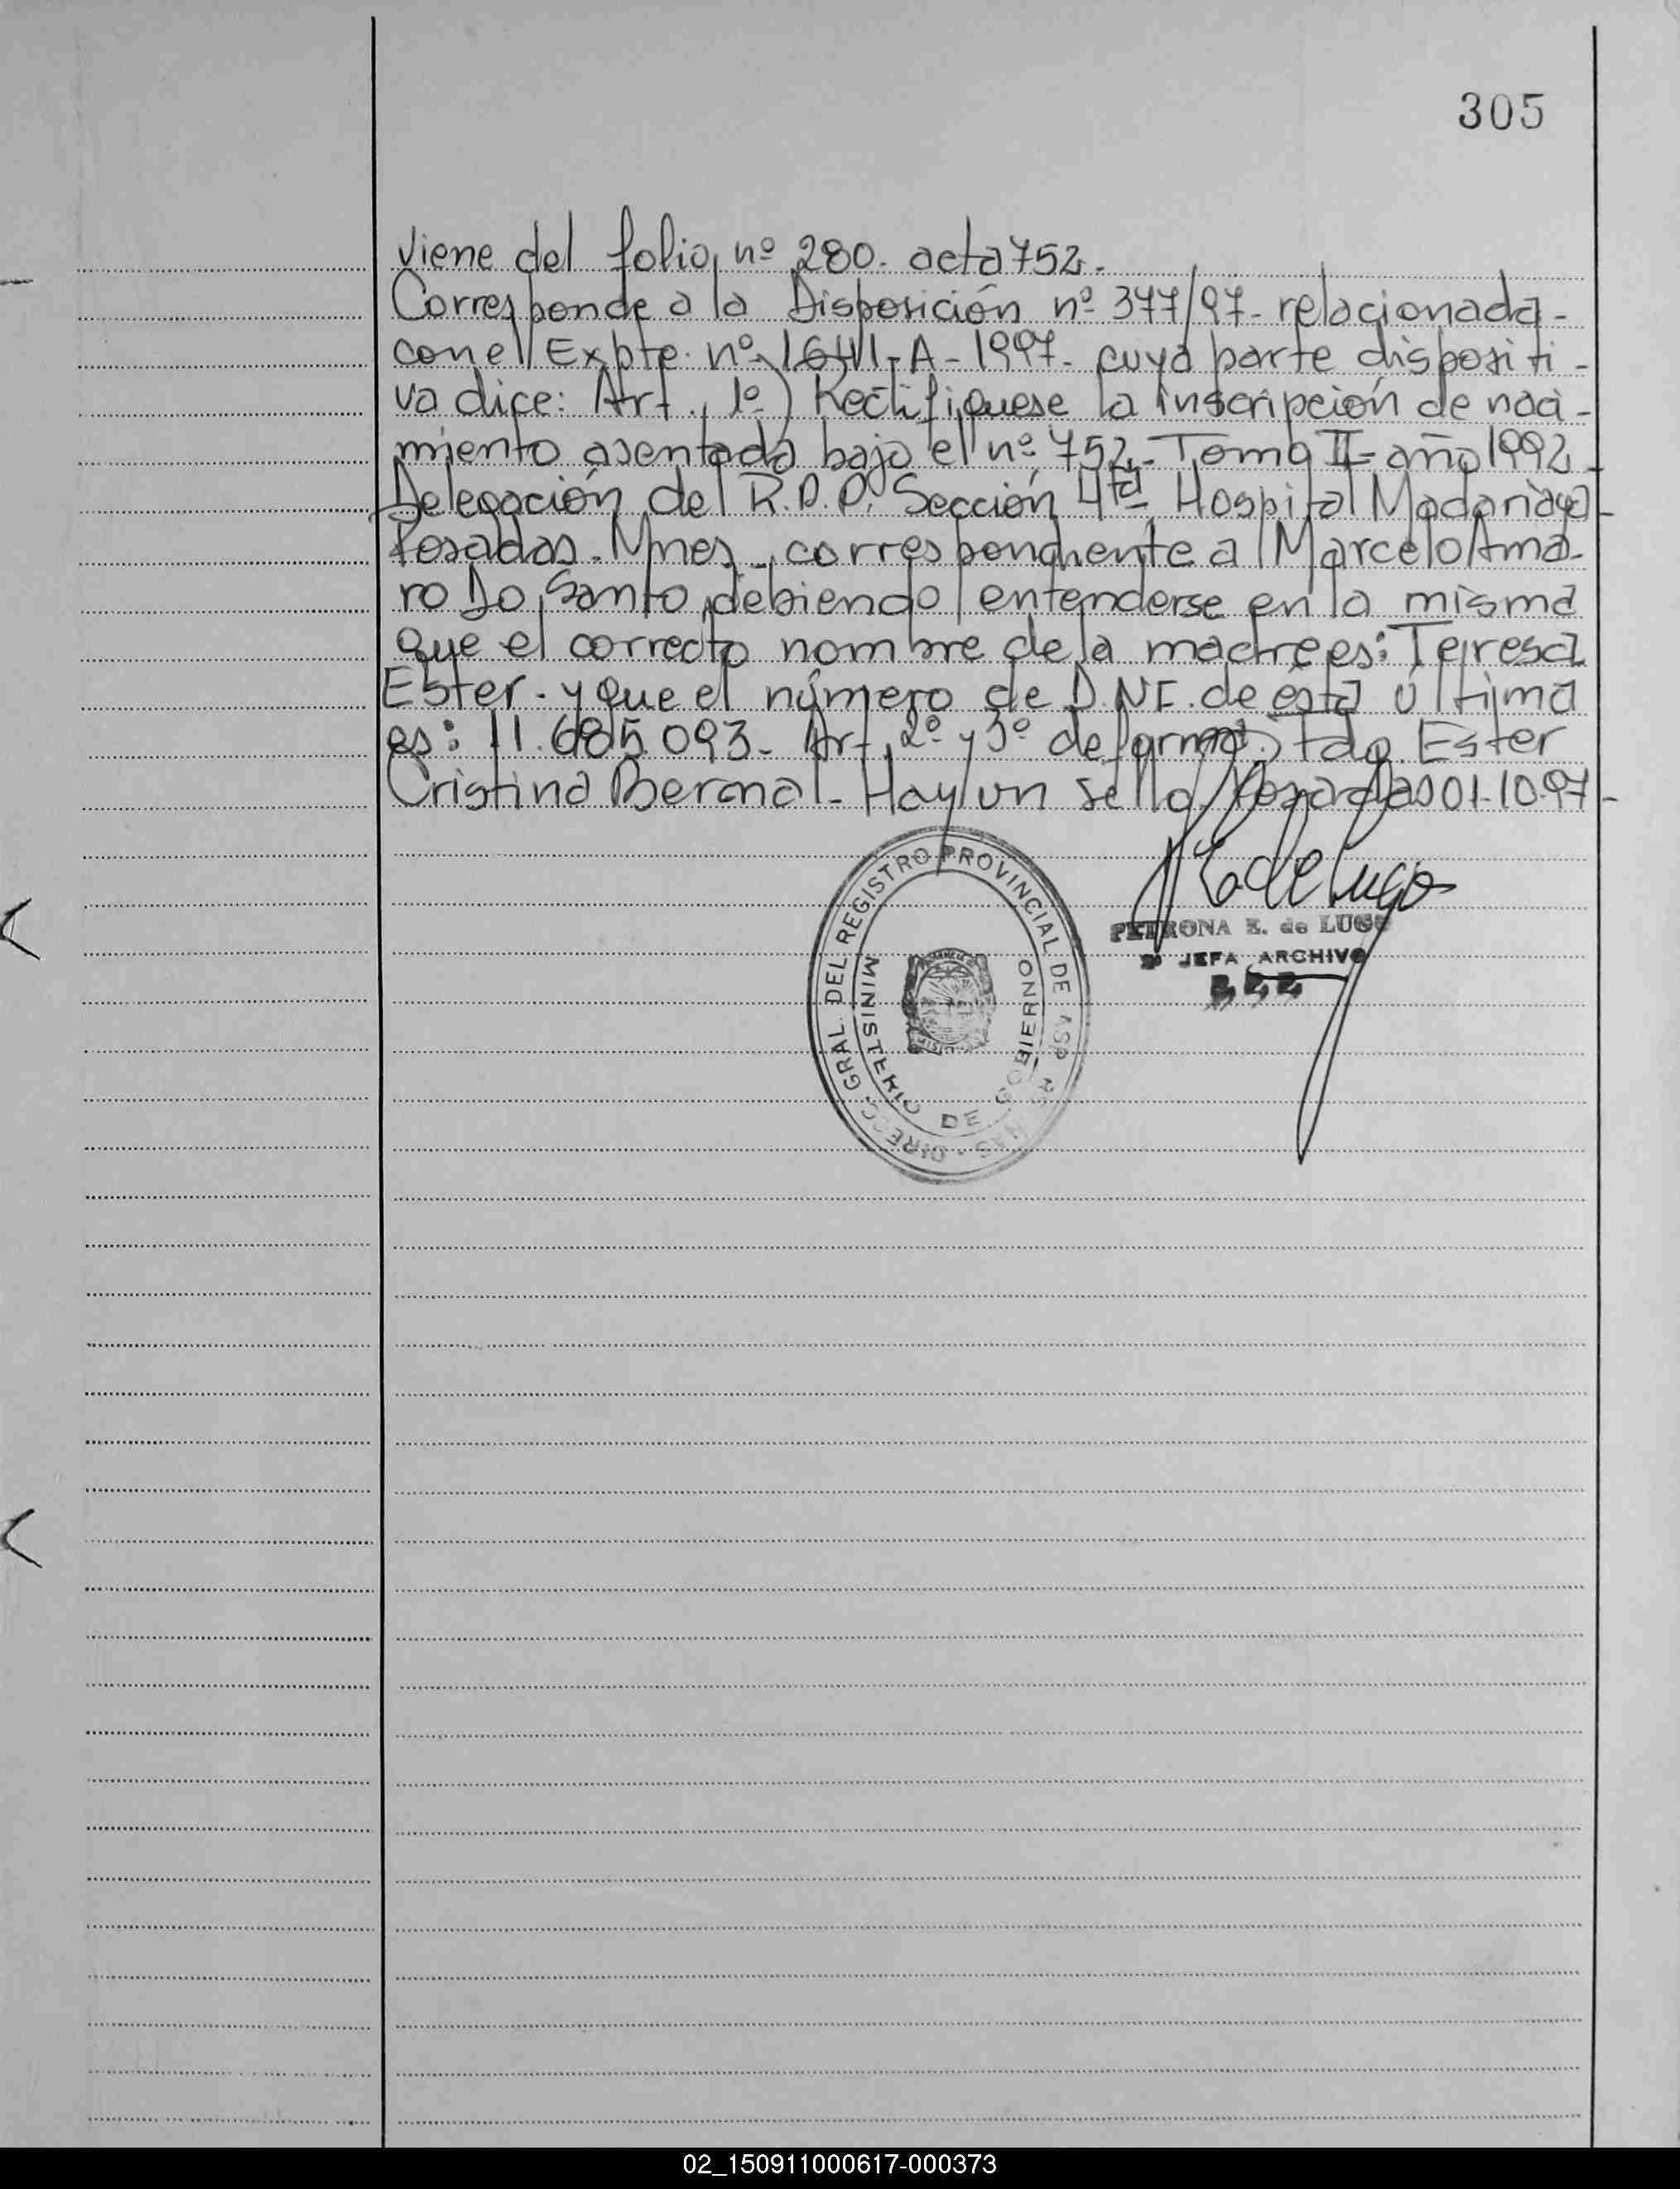 305
Viene del folio nº 280. acta 752.
Corresponde a la Disposición nº 377/97- relacionada-
con el Expte. nº 1641-A-1997- cuya parte dispositi-
va dice: Art. 1º) Rectifíquese la inscripción de naci-
miento asentada bajo el nº 752- Tomo II- año 1992-
Delegación del R.D.P. Sección 4ta Hospital Madariaga-
Posadas. Mnes- correspondiente a Marcelo Ama-
ro Do Santo, debiendo entenderse en la misma
que el correcto nombre de la madre es: Teresa
Ester. y que el número de D.N.I. de ésta última
es: 11.685.093- Art. 2º y 3º de forma. Fdo. Ester
Cristina Bernal- Hay un sello. Posadas 01-10-97-
DIRECC. GRAL. DEL REGISTRO PROVINCIAL DE LAS PERSONAS
MINISTERIO DE GOBIERNO
PETRONA E. de LUGO
JEFA ARCHIVO
02_150911000617-000373